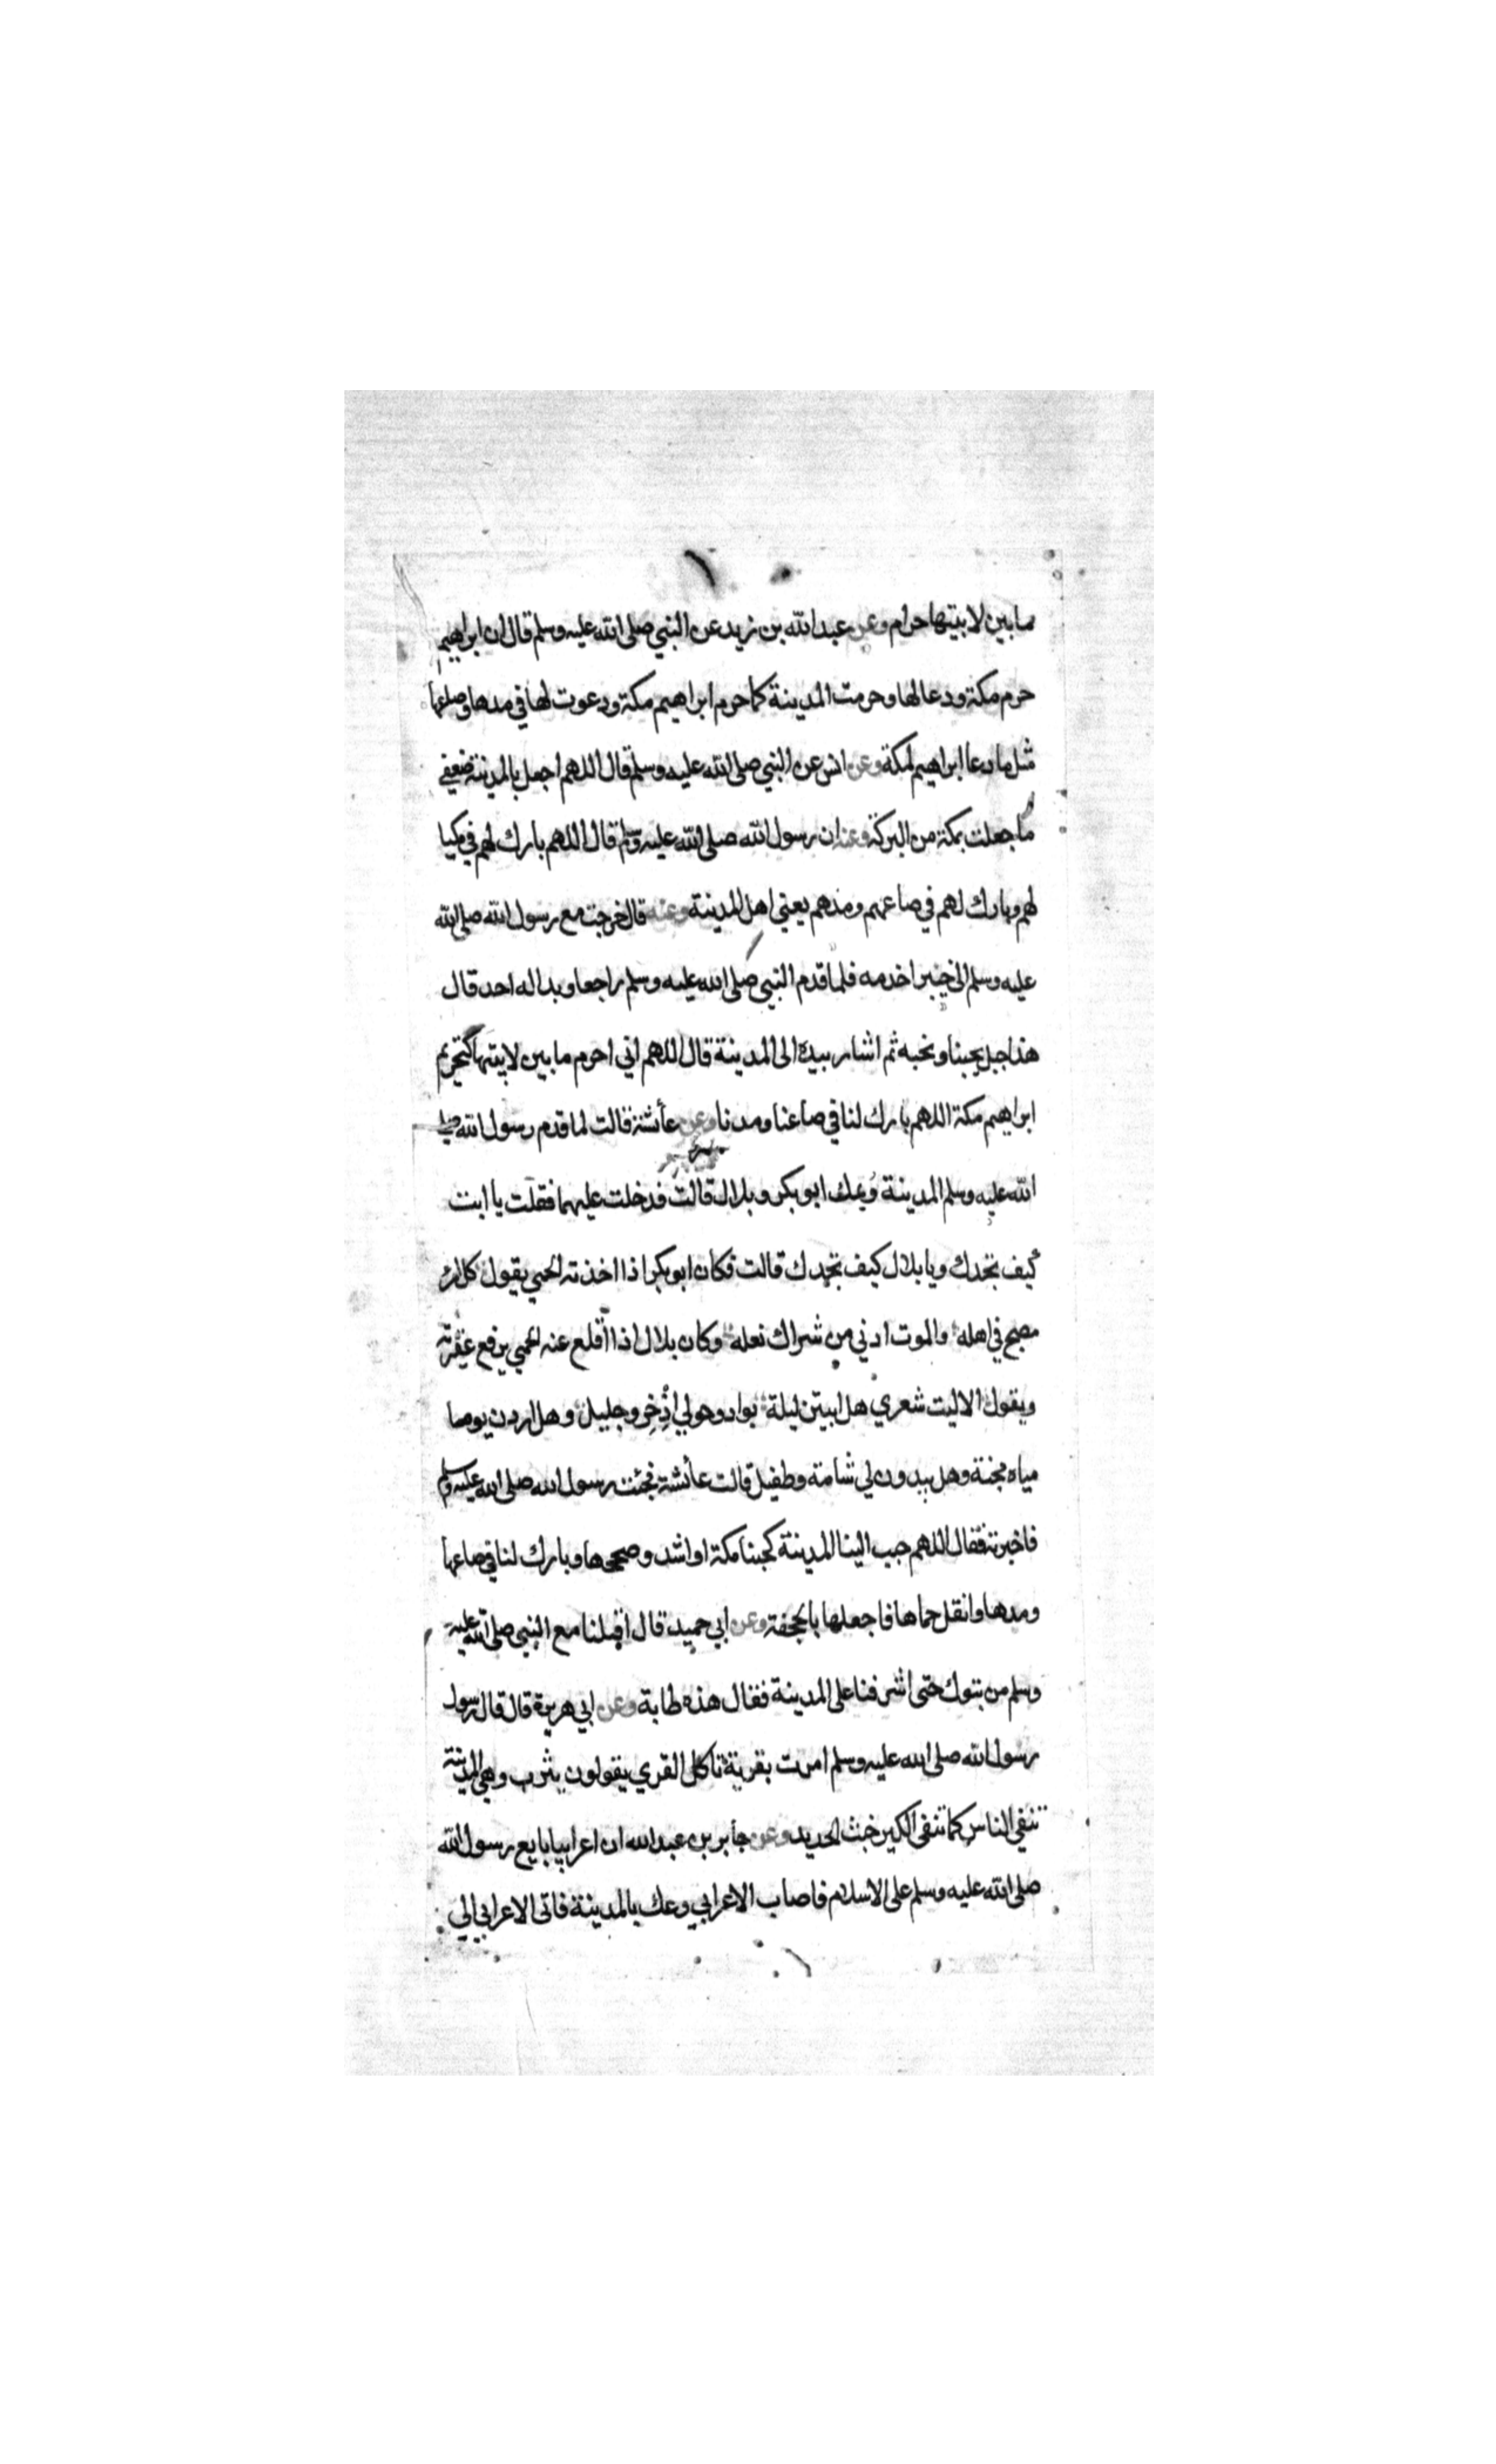 ما بين لابيتها حرام وعن عبد الله بن زيد عن النبي صلى الله عليه وسلم قال ان ابراهيم
حرم مكة ودعا لها وحرمت المدينة كما حرم ابراهيم مكة ودعوت لها في مدها وصاعها
مثل ما دعا ابراهيم لمكة وعن انس عن النبي صلى الله عليه وسلم قال اللهم اجعل بالمدينة ضعفي
ما جعلت بمكة من البركة وعنه ان رسول الله صلى الله عليه وسلم قال اللهم بارك لهم في مكيا
لهم وبارك لهم في صاعهم ومدهم يعني اهل المدينة وعنه قال خرجت مع رسول الله صلى الله
عليه وسلم الى خيبر اخدمه فلما قدم النبي صلى الله عليه وسلم راجعا وبدا له احد قال
هذا جبل يحبنا ونحبه ثم اشار بيده الى المدينة قال اللهم اني احرم ما بين لابيتها كتحريم
ابراهيم مكة اللهم بارك لنا في صاعنا ومدنا وعن عائشة قالت لما قدم رسول الله صلى
الله عليه وسلم المدينة وعك ابو بكر وبلال قالت فدخلت عليهما فقلت يا ابت
كيف تجدك ويا بلال كيف تجدك قالت فكان ابو بكر اذا اخذته الحمي يقول كل امرئ
مصبح في اهله والموت ادني من شراك نعله وكان بلال اذا اقلع عنه الحمي يرفع عقيرته
ويقول الا ليت شعري هل ابيتن ليلة بواد وحولي اذخر وجليل وهل اردن يوما
مياه مجنة وهل يبدون لي شامة وطفيل قالت عائشة فجئت رسول الله صلى الله عليه وسلم
فاخبرته فقال اللهم حبب الينا المدينة كحبنا مكة او اشد وصححها وبارك لنا في صاعها
ومدها وانقل حماها فاجعلها بالجحفة وعن ابي حميد قال اقبلنا مع النبي صلى الله عليه
وسلم من تبوك حتى اشرفنا على المدينة فقال هذه طابة وعن ابي هريرة قال قال رسول
رسول الله صلى الله عليه وسلم امرت بقرية تاكل القري يقولون يثرب وهي المدينة
تنفي الناس كما تنفي الكير خبث الحديد وعن جابر بن عبد الله ان اعرابيا بايع رسول الله
صلى الله عليه وسلم على الاسلام فاصاب الاعرابي وعك بالمدينة فاتى الاعرابي الي